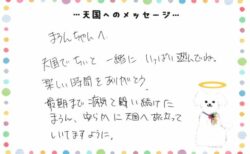 …天国へのメッセージ…
まろんちゃんへ
天国でちぃと一緒にいっぱい遊んでね。
楽しい時間をありがとう。
最期まで病気と闘い続けた
まろん、安らかに天国へ旅立って
いていますように。